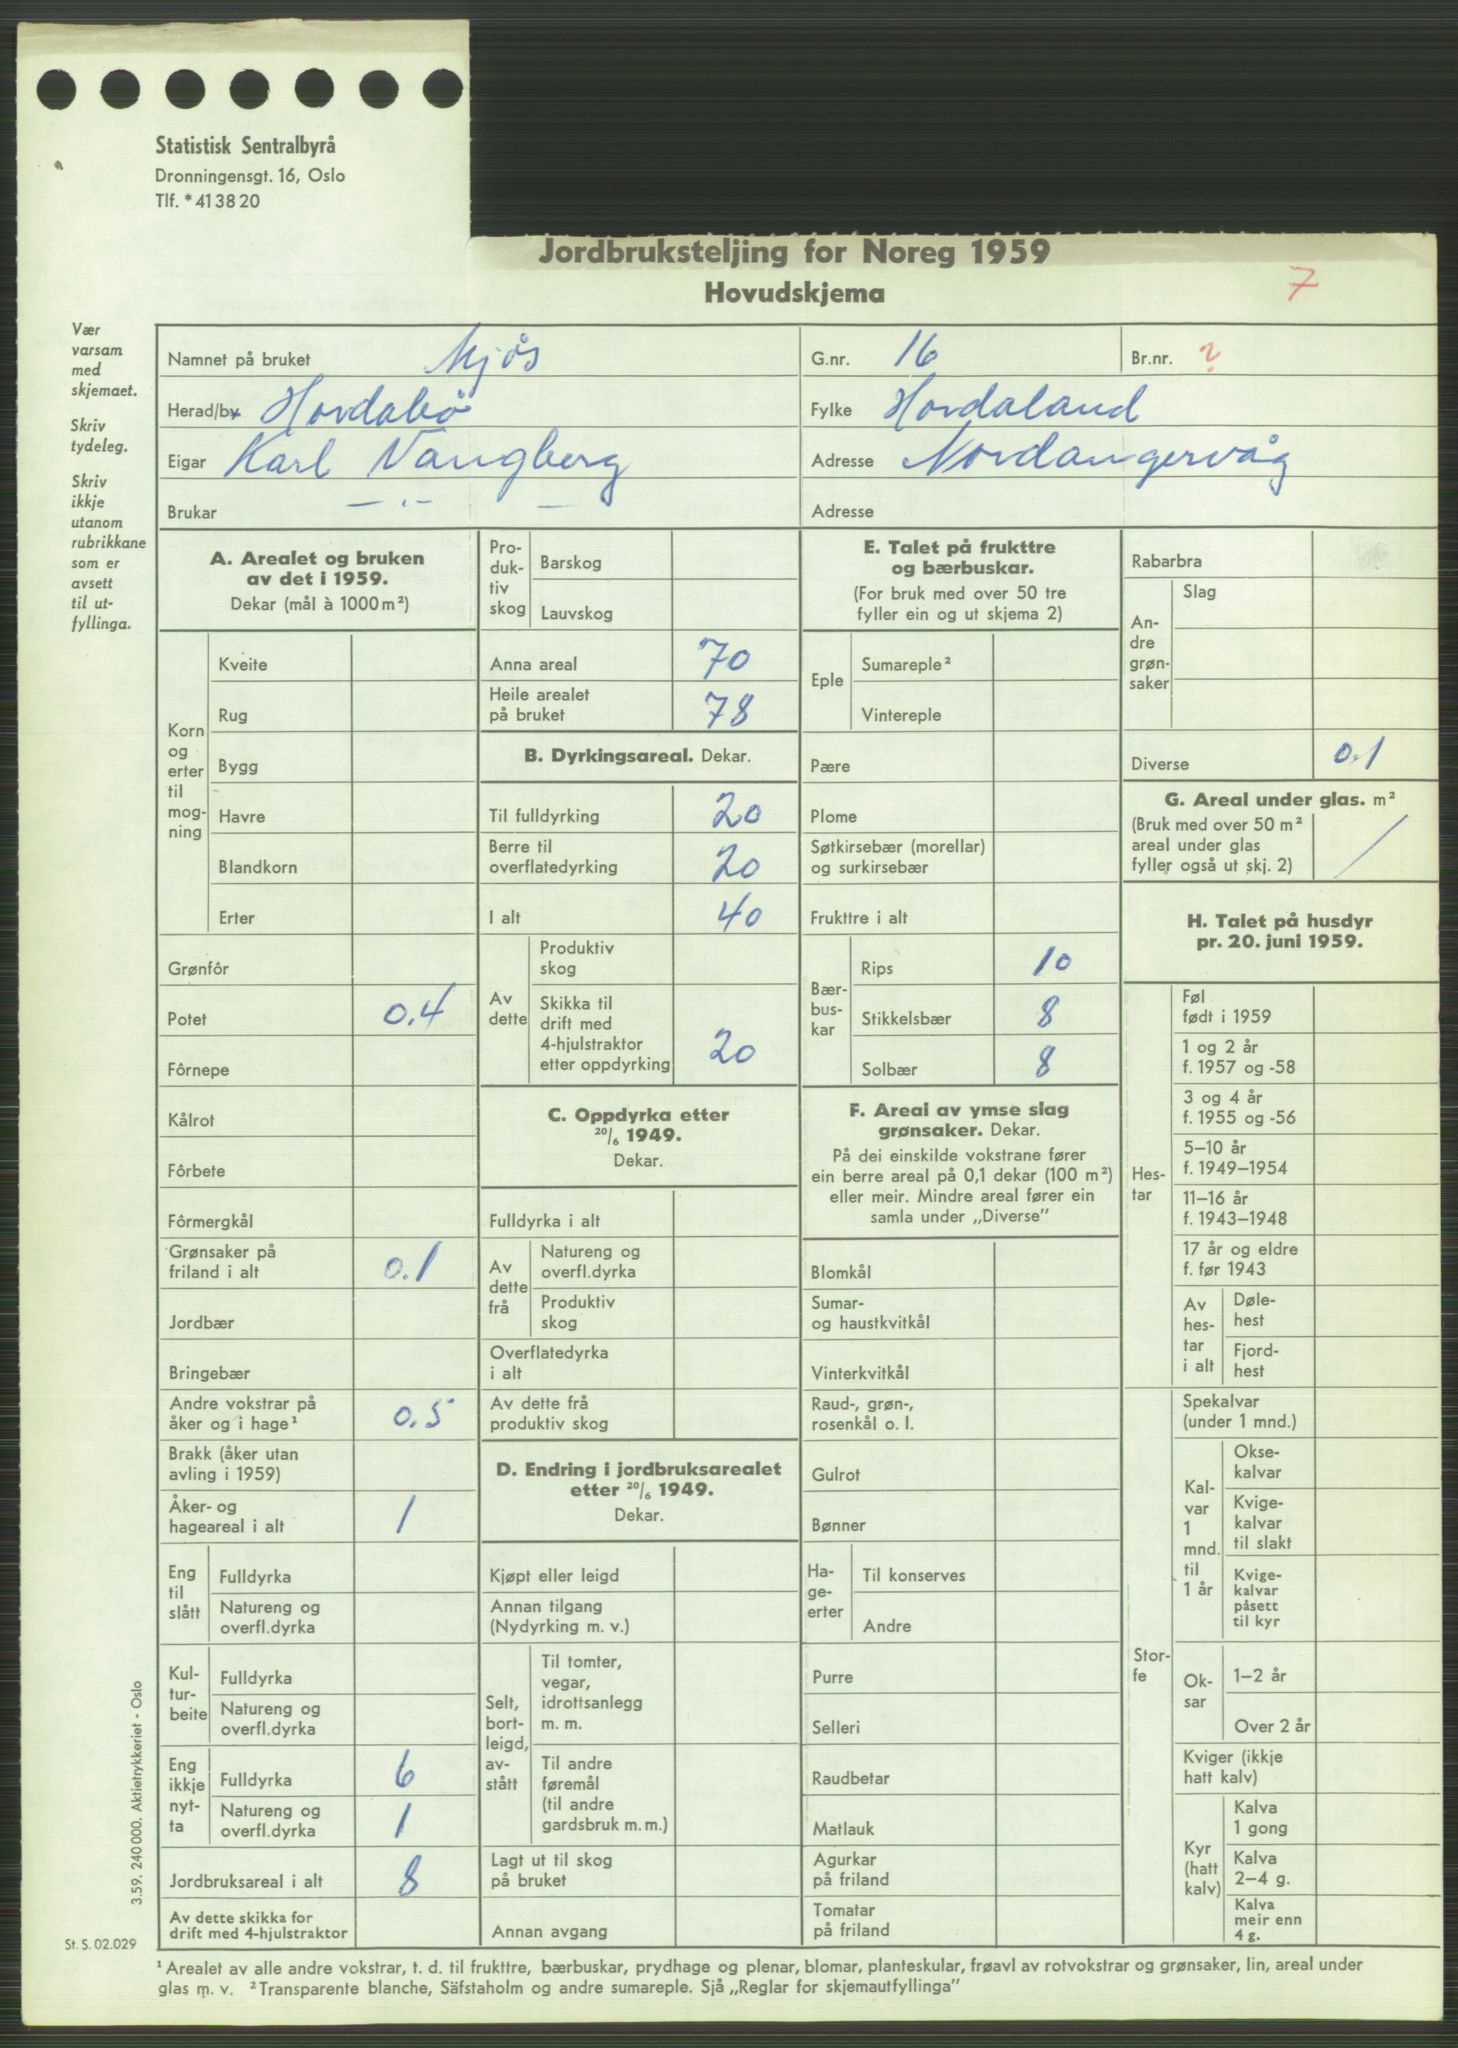 Statistisk Sentralbyrå
Dronningensgt. 16, Oslo
Tlf. *41 38 20
Jordbruksteljing for Noreg 1959
Hovudskjema
7
Vær
varsam
med
skjemaet.
Skriv
tydeleg.
Skriv
ikkje
utanom
rubrikkane
som er
avsett
til ut-
fyllinga.
Namnet på bruket Mjøs G.nr. 16 Br.nr. ?
Herad/by Hordabø Fylke Hordaland
Eigar Karl Vangberg Adresse Nordangervåg
Brukar — „ — Adresse
A. Arealet og bruken
av det i 1959.
Dekar (mål à 1000 m²)
Korn
og
erter
til
mog-
ning
Kveite
Rug
Bygg
Havre
Blandkorn
Erter
Grønfôr
Potet 0.4
Fôrnepe
Kålrot
Fôrbete
Fôrmergkål
Grønsaker på
friland i alt 0.1
Jordbær
Bringebær
Andre vokstrar på
åker og i hage¹ 0.5
Brakk (åker utan
avling i 1959)
Åker- og
hageareal i alt 1
Eng
til
slått
Fulldyrka
Natureng og
overfl.dyrka
Kul-
tur-
beite
Fulldyrka
Natureng og
overfl.dyrka
Eng
ikkje
nyt-
ta
Fulldyrka 6
Natureng og
overfl.dyrka 1
Jordbruksareal i alt 8
Av dette skikka for
drift med 4-hjulstraktor
Pro-
duk-
tiv
skog
Barskog
Lauvskog
Anna areal 70
Heile arealet
på bruket 78
B. Dyrkingsareal. Dekar.
Til fulldyrking 20
Berre til
overflatedyrking 20
I alt 40
Av
dette
Produktiv
skog
Skikka til
drift med
4-hjulstraktor
etter oppdyrking 20
C. Oppdyrka etter
20/6 1949.
Dekar.
Fulldyrka i alt
Av
dette
frå
Natureng og
overfl.dyrka
Produktiv
skog
Overflatedyrka
i alt
Av dette frå
produktiv skog
D. Endring i jordbruksarealet
etter 20/6 1949.
Dekar.
Kjøpt eller leigd
Annan tilgang
(Nydyrking m. v.)
Selt,
bort-
leigd,
av-
stått
Til tomter,
vegar,
idrottsanlegg
m. m.
Til andre
føremål
(til andre
gardsbruk m. m.)
Lagt ut til skog
på bruket
Annan avgang
E. Talet på frukttre
og bærbuskar.
(For bruk med over 50 tre
fyller ein og ut skjema 2)
Eple
Sumareple²
Vintereple
Pære
Plome
Søtkirsebær (morellar)
og surkirsebær
Frukttre i alt
Bær-
bus-
kar
Rips 10
Stikkelsbær 8
Solbær 8
F. Areal av ymse slag
grønsaker. Dekar.
På dei einskilde vokstrane fører
ein berre areal på 0,1 dekar (100 m²)
eller meir. Mindre areal fører ein
samla under „Diverse”
Blomkål
Sumar-
og haustkvitkål
Vinterkvitkål
Raud-, grøn-,
rosenkål o. l.
Gulrot
Bønner
Ha-
ge-
erter
Til konserves
Andre
Purre
Selleri
Raudbetar
Matlauk
Agurkar
på friland
Tomatar
på friland
Rabarbra
An-
dre
grøn-
saker
Slag
Diverse 0.1
G. Areal under glas. m²
(Bruk med over 50 m²
areal under glas
fyller også ut skj. 2) /
H. Talet på husdyr
pr. 20. juni 1959.
Hes-
tar
Føl
født i 1959
1 og 2 år
f. 1957 og -58
3 og 4 år
f. 1955 og -56
5–10 år
f. 1949–1954
11–16 år
f. 1943–1948
17 år og eldre
f. før 1943
Av
hes-
tar
i alt
Døle-
hest
Fjord-
hest
Stor-
fe
Spekalvar
(under 1 mnd.)
Kal-
var
1
mnd.
til
1 år
Okse-
kalvar
Kvige-
kalvar
til slakt
Kvige-
kalvar
påsett
til kyr
Ok-
sar
1–2 år
Over 2 år
Kviger (ikkje
hatt kalv)
Kyr
(hatt
kalv)
Kalva
1 gong
Kalva
2–4 g.
Kalva
meir enn
4 g.
3.59. 240 000. Aktietrykkeriet - Oslo
St. S. 02.029
¹ Arealet av alle andre vokstrar, t. d. til frukttre, bærbuskar, prydhage og plenar, blomar, planteskular, frøavl av rotvokstrar og grønsaker, lin, areal under
glas m. v. ² Transparente blanche, Säfstaholm og andre sumareple. Sjå „Reglar for skjemautfyllinga”